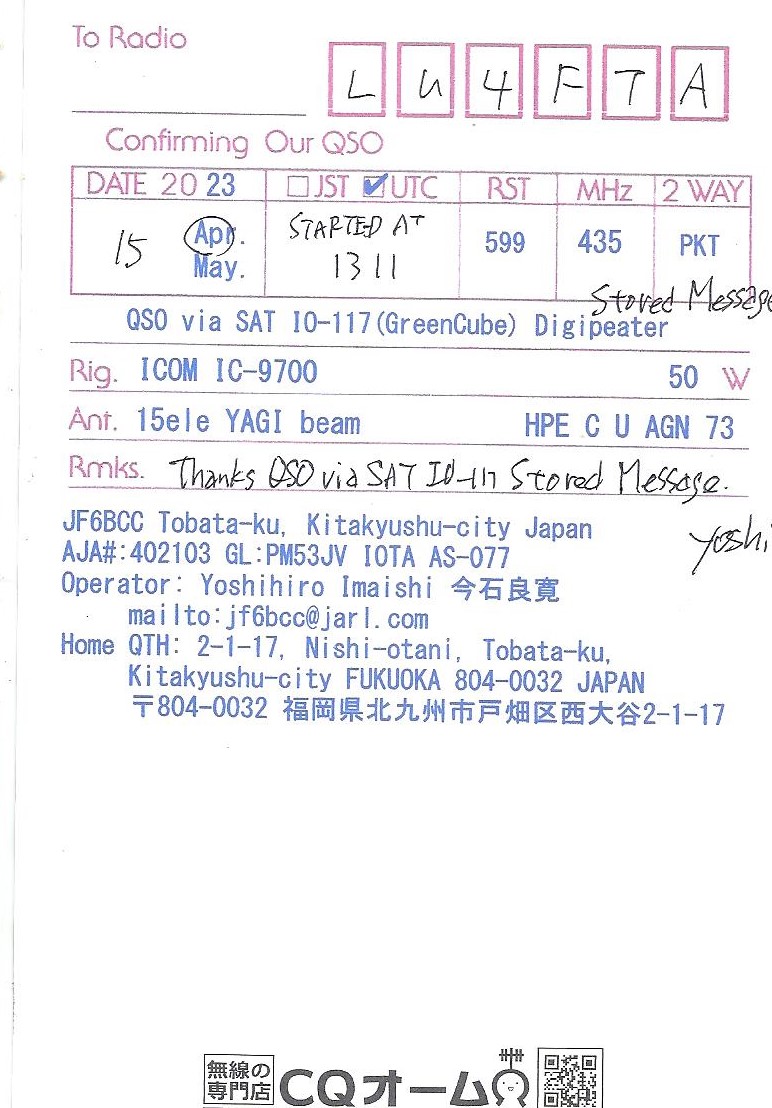 To Radio
L U 4 F T A
Confirming Our QSO
DATE 20 23 □JST ☑UTC RST MHz 2 WAY
15 Apr. May. STARTED AT 1311 599 435 PKT
Stored Message
QSO via SAT IO-117(GreenCube) Digipeater
Rig. ICOM IC-9700 50 W
Ant. 15ele YAGI beam HPE C U AGN 73
Rmks. Thanks QSO via SAT IO-117 Stored Message.
Yoshi
JF6BCC Tobata-ku, Kitakyushu-city Japan
AJA#:402103 GL:PM53JV IOTA AS-077
Operator: Yoshihiro Imaishi 今石良寛
mailto:jf6bcc@jarl.com
Home QTH: 2-1-17, Nishi-otani, Tobata-ku,
Kitakyushu-city FUKUOKA 804-0032 JAPAN
〒804-0032 福岡県北九州市戸畑区西大谷2-1-17
無線の
専門店
CQオーム